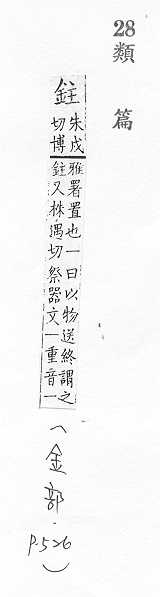 28
類篇
鉒
朱戍
切博
雅署置也一曰以物送終謂之
鉒又株遇切祭器文一重音一
(金部.
p.526)